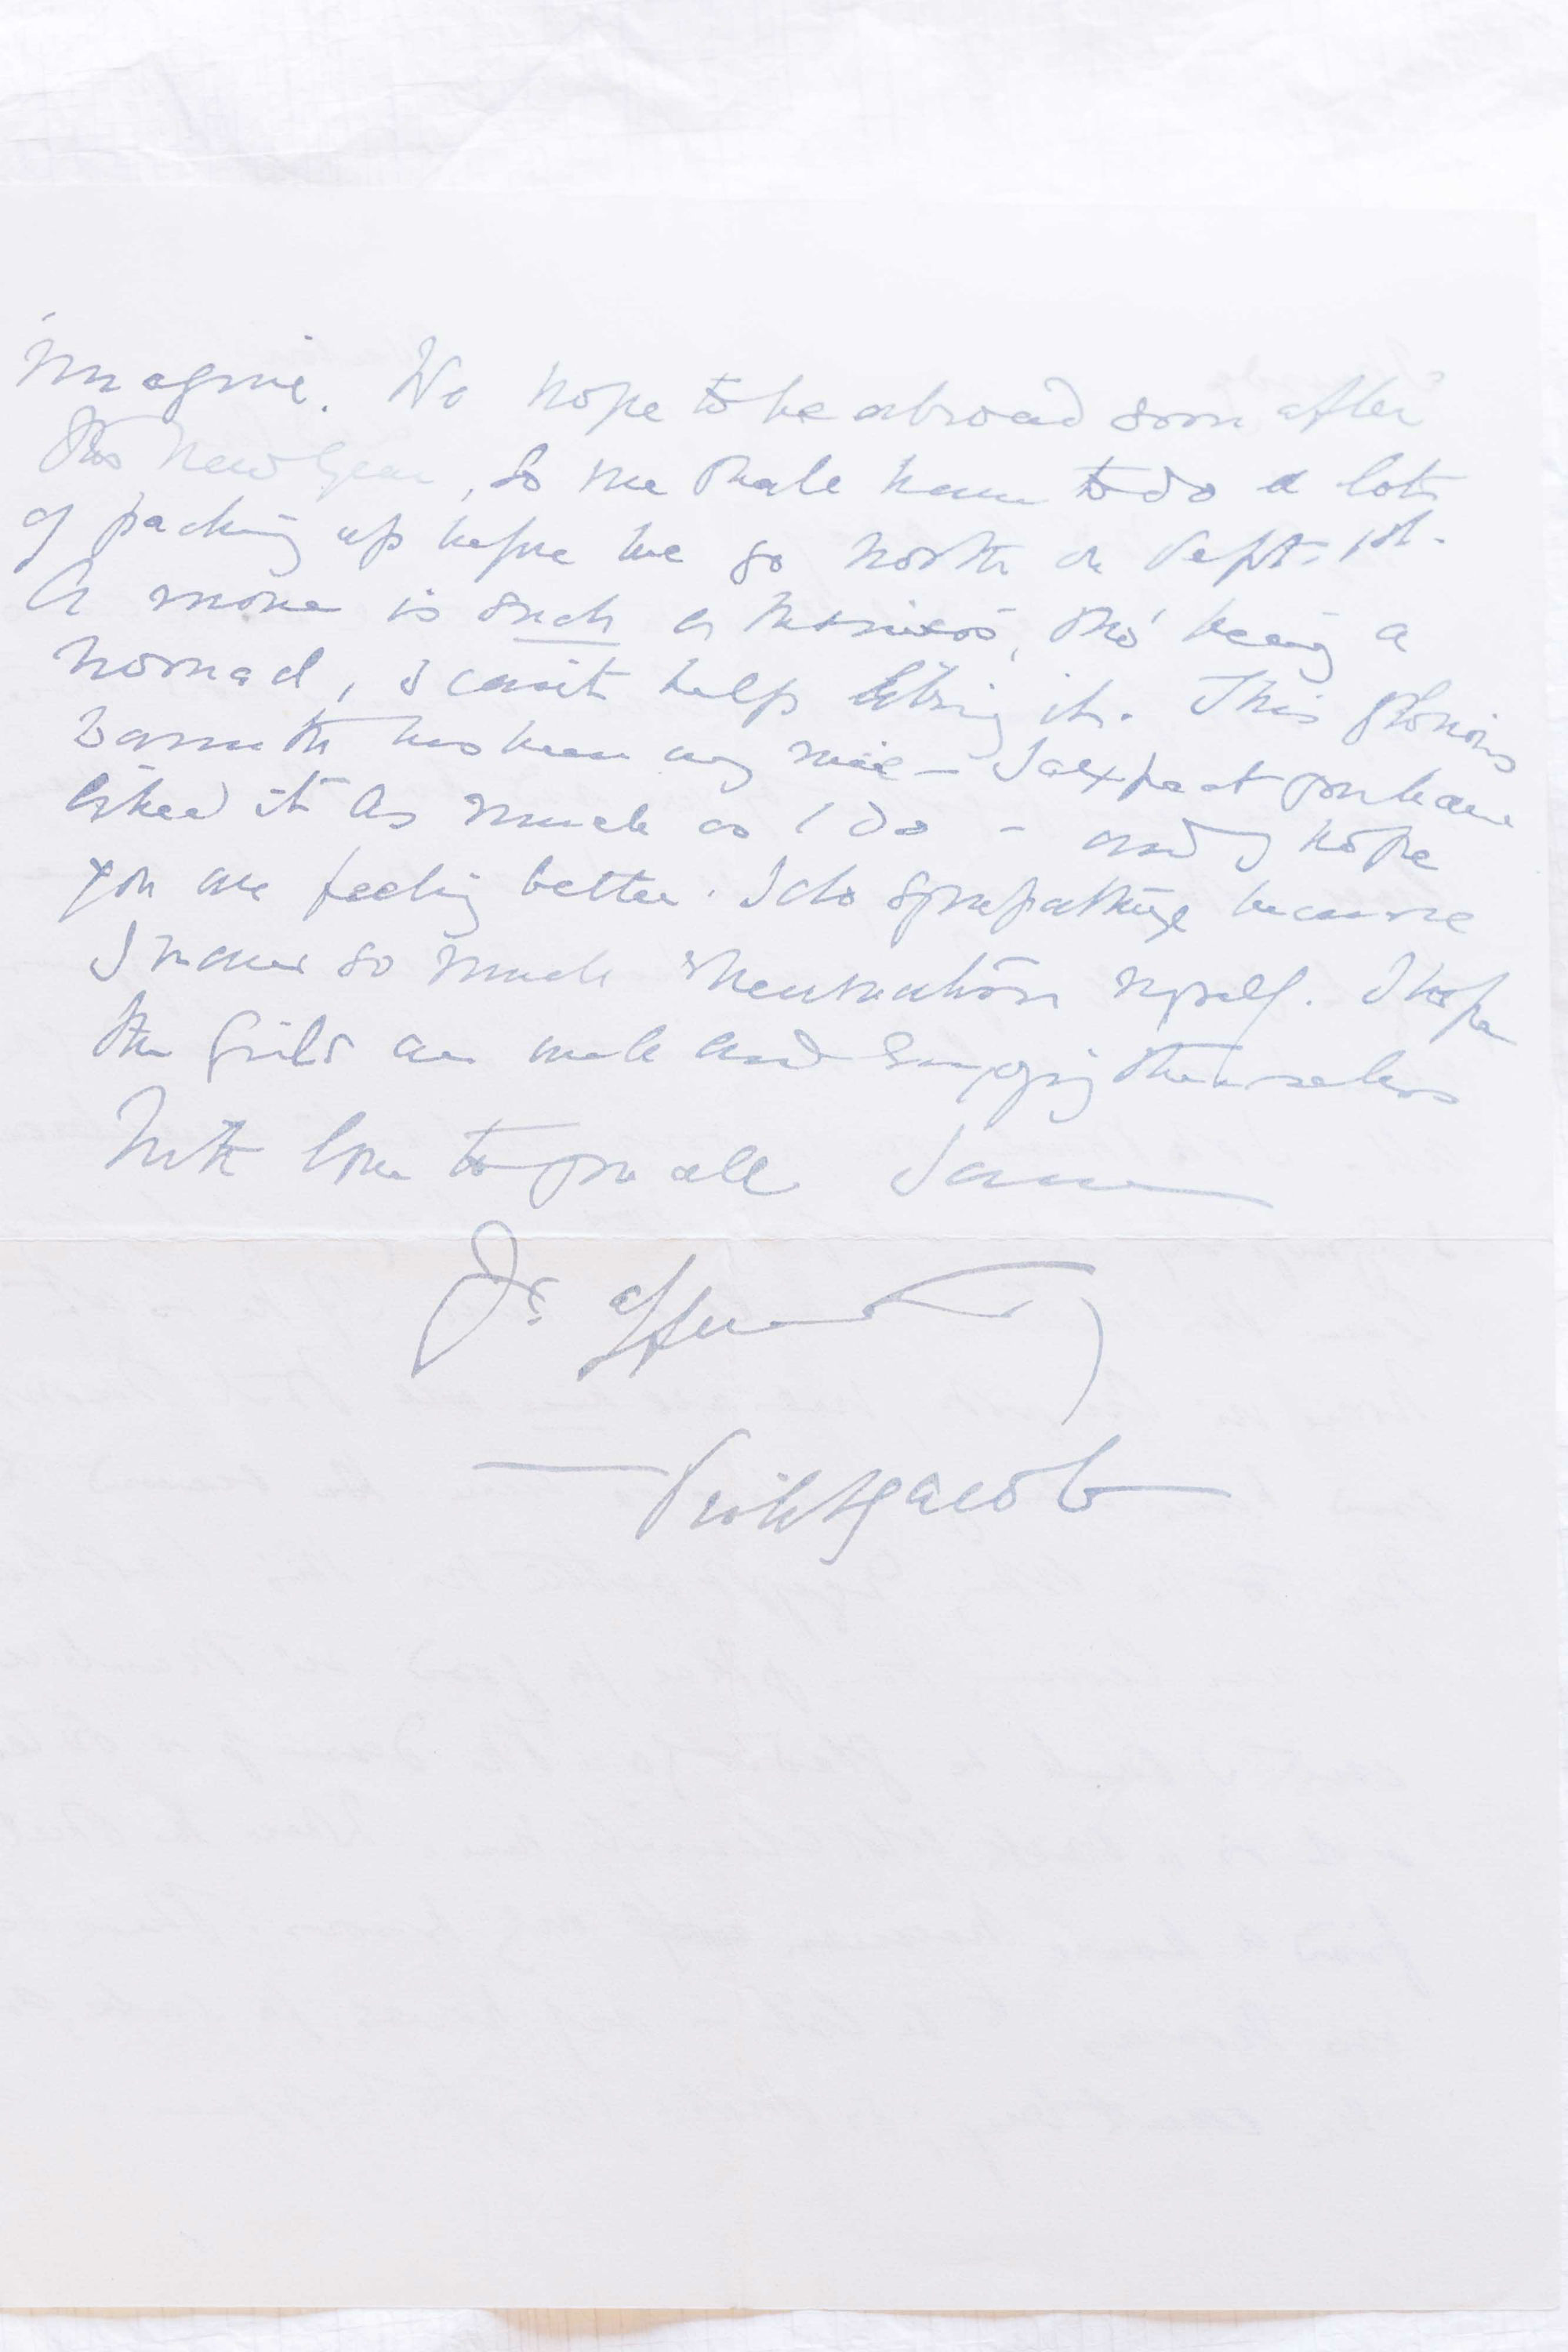 imagine. We hope to be abroad soon after
the New Year, so we shall have to do a lot
of packing up before we go North on Sept. 1st.
A move is such a business, tho' being a
nomad, I can't help liking it. This glorious
warmth has been very nice – I expect you have
liked it as much as I do – and I hope
you are feeling better. I do sympathize because
I have so much rheumatism myself. I hope
the girls are well and enjoying themselves
With love to you all
Yr. affen
Violet Jacob